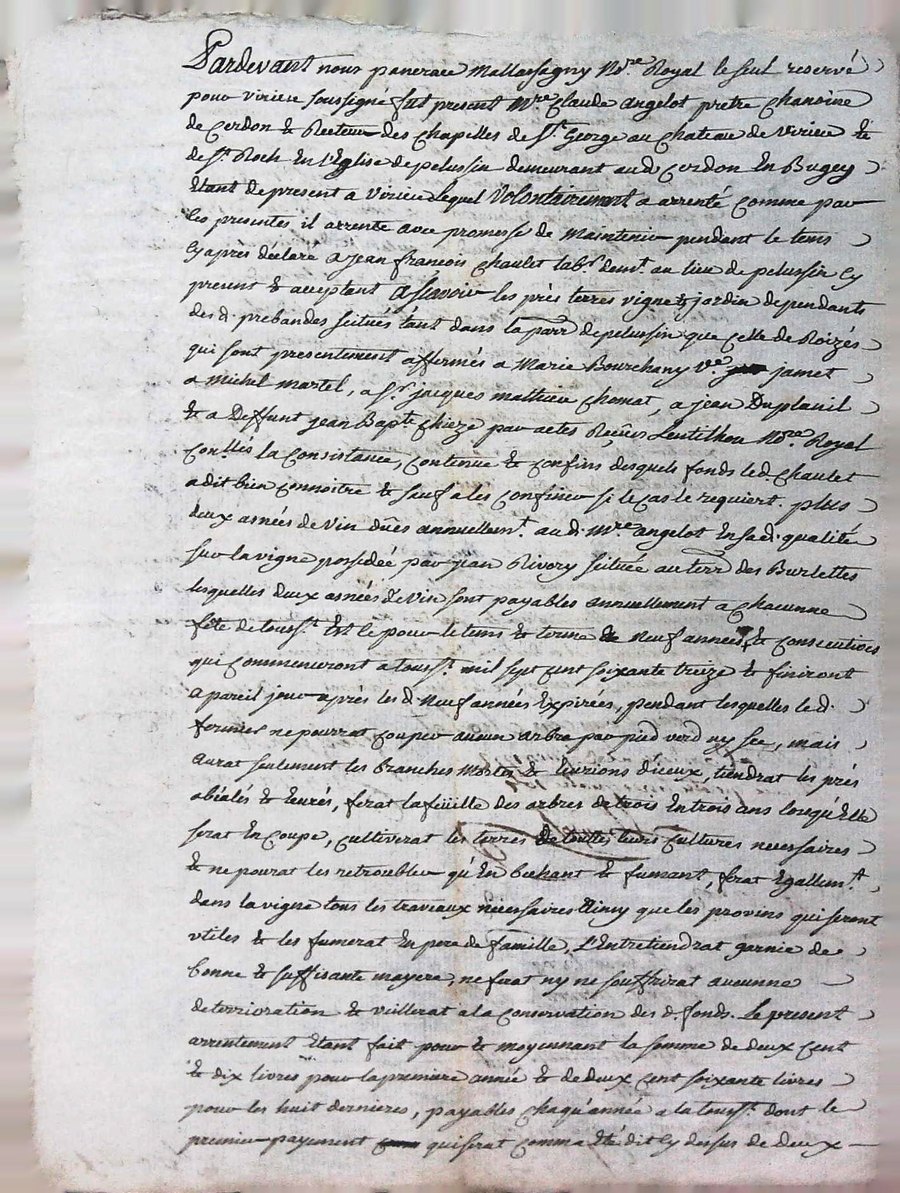 Pardevant nous pancrace Mallassagny No.re Royal le seul reservé
pour virieu soussigné fut present Mre. Claude angelot pretre chanoine
de Cerdon & Recteur des chapelles de St. George au chateau de virieu &
de St. Roch En l'Eglise de pelussin demeurant aud. Cerdon En Bugey
Etant de present a virieu lequel Volontairement a arrenté comme par
les presentes il arrente avec promesse de Maintenir pendant le tems
Cy après déclaré a jean francois chaulet labr. demt. au lieu de pelussin Cy
present & acceptant a scavoir les près terres vigne & jardin dependants
des d. prebandes scitués tant dans la parr. de pelussin que celle de Roizés
qui sont presentement affermés a Marie Bourchany ve. jamet
a Michel martel, a Sr. jacques mathieu chomat, a jean Duplanil
& a Deffunt jean Bapte. chieze par actes Reçûes Lentilhon No.re Royal
la Consistance, contenûe & confins desquels fonds led. chaulet
a dit bien connoitre & sauf a les confiner si le cas le requiert. plus
deux asnées de vin dûes annuellemt. au d. Mre. angelot En sa d. qualité
sur la vigne possedée par jean Rivory scituée au terr. des Burlettes
lesquelles deux asnées de vin sont payables annuellement a chacunne
fête de touss.t Et ce pour le tems & terme de neuf années & consecutives
qui commenceront a touss.t mil sept cent soixante treize & finiront
a pareil jour après les d. neuf années Expirées, pendant lesquelles le d.
fermier ne pourrat couper aucun arbre par pied verd ny sec, mais
aurat seulement les branches mortes & d'iceux, tiendrat les prés
& , ferat la feüille des arbres de trois En trois ans lorsqu'Elle
serat En coupe, cultiverat les terres de touttes leurs cultures necessaires
& ne pourat les retroubler qu'En bechant & fumant, ferat Egallemt.
dans la vigne tous les travaux nécessaires Ainsy que les provins qui seront
utiles & les fumerat En pere de famille, L'Entretiendrat garnie de
bonne & suffisante mayere, ne ferat ny ne souffrirat aucunne
deterrioration & veillerat a la conservation des d. fonds. Le present
arrentement Etant fait pour & moyennant la somme de deux cent
& dix livres pour la premiere année & de deux cent soixante livres
pour les huit dernieres, payables chaqu'année a la touss.t dont le
premier payement qui serat comm'a Eté dit Cy dessus de deux